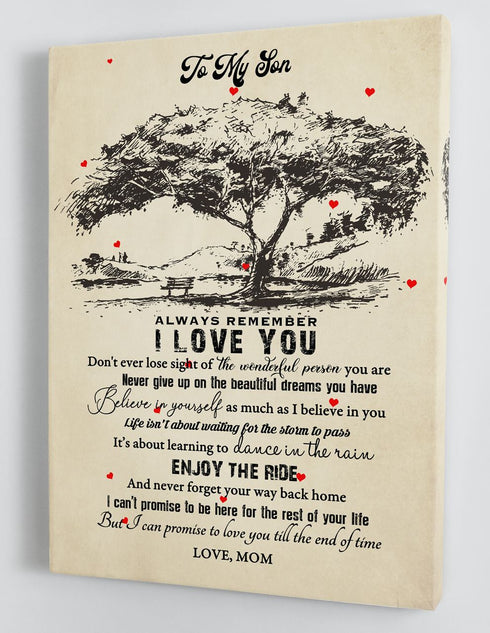 To My Son
ALWAYS REMEMBER
I LOVE YOU
Don't ever lose sight of the wonderful person you are
Never give up on the beautiful dreams you have
Believe in yourself as much as I believe in you
Life isn't about waiting for the storm to pass
It's about learning to dance in the rain
ENJOY THE RIDE
And never forget your way back home
I can't promise to be here for the rest of your life
But I can promise to love you till the end of time
LOVE, MOM